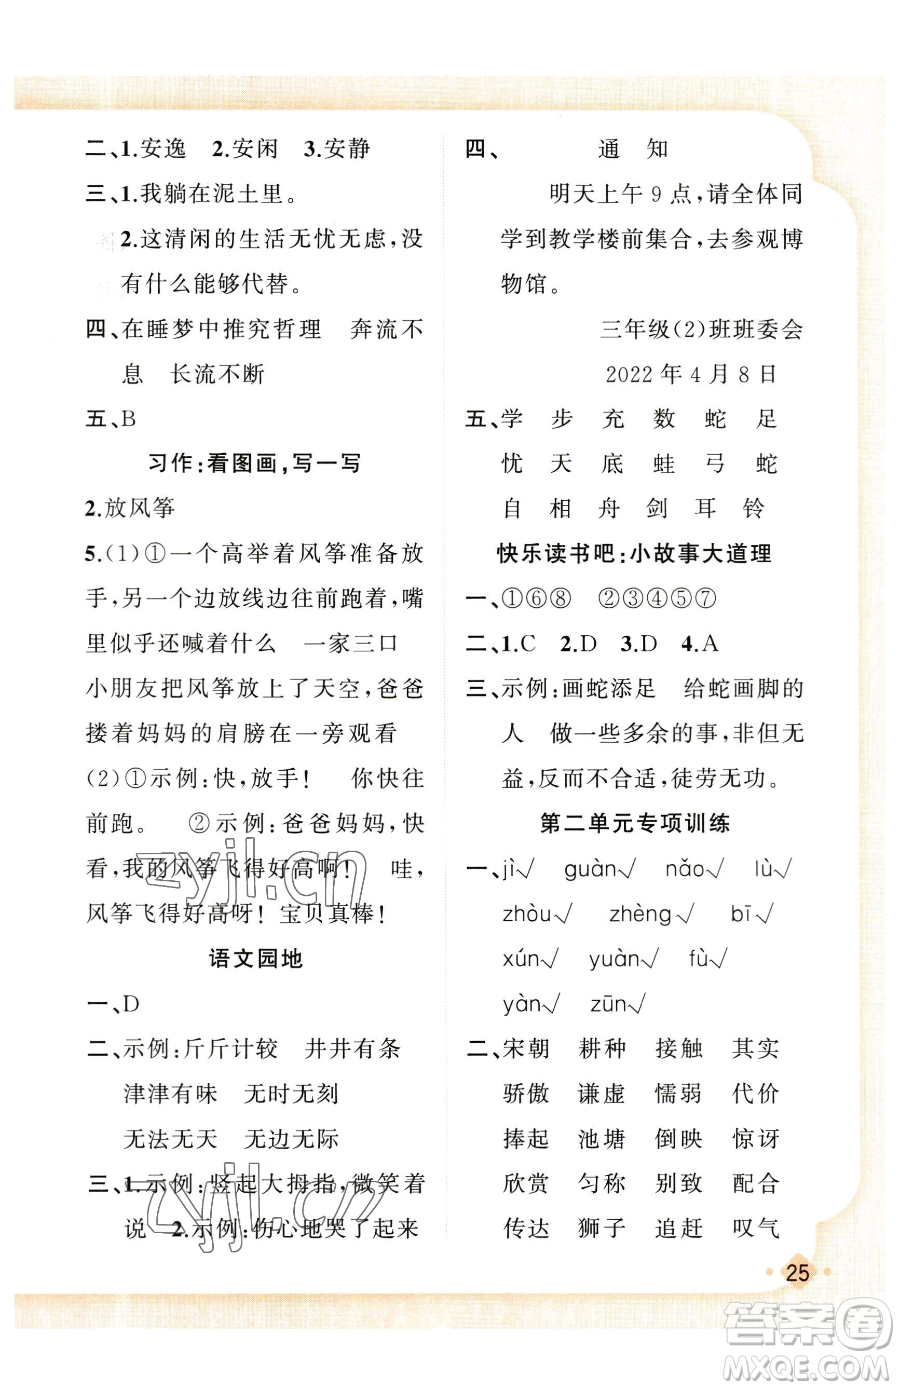 二、1.安逸　2.安闲　3.安静
三、1.我躺在泥土里。
2.这清闲的生活无忧无虑,没
有什么能够代替。
四、在睡梦中推究哲理　奔流不
息　长流不断
五、B
习作:看图画,写一写
2.放风筝
5.(1)①一个高举着风筝准备放
手,另一个边放线边往前跑着,嘴
里似乎还喊着什么　一家三口
小朋友把风筝放上了天空,爸爸
搂着妈妈的肩膀在一旁观看
(2)①示例:快,放手!　你快往
前跑。　②示例:爸爸妈妈,快
看,我的风筝飞得好高啊!　哇,
风筝飞得好高呀!宝贝真棒!
语文园地
一、D
二、示例:斤斤计较　井井有条
津津有味　无时无刻
无法无天　无边无际
三、1.示例:竖起大拇指,微笑着
说　2.示例:伤心地哭了起来
四、　通　知
明天上午9点,请全体同
学到教学楼前集合,去参观博
物馆。
三年级(2)班班委会
2022年4月8日
五、学　步　充　数　蛇　足
忧　天　底　蛙　弓　蛇
自　相　舟　剑　耳　铃
快乐读书吧:小故事大道理
一、①⑥⑧　②③④⑤⑦
二、1.C　2.D　3.D　4.A
三、示例:画蛇添足　给蛇画脚的
人　做一些多余的事,非但无
益,反而不合适,徒劳无功。
第二单元专项训练
一、jì√　guàn√　nǎo√　lù√
zhòu√　zhèng√　bī√
xún√　yuàn√　fù√
yàn√　zūn√
二、宋朝　耕种　接触　其实
骄傲　谦虚　懦弱　代价
捧起　池塘　倒映　惊讶
欣赏　匀称　别致　配合
传达　狮子　追赶　叹气
25
zyjl.cn
zyjl.cn
答案圈
MXQE.COM